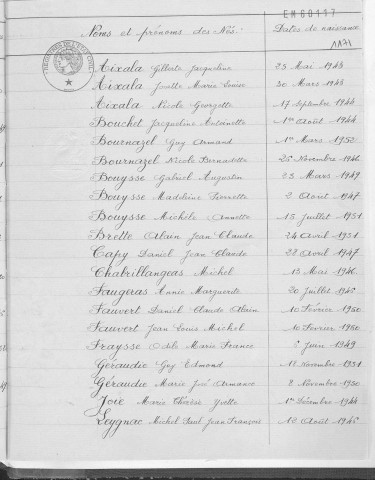 EM60117
Noms et prénoms des Nés. Dates de naissance
1171
Aixala Gilberte Jacqueline 23 Mai 1944
Aixala Josette Marie Louise 30 Mars 1944
Aixala Nicole Georgette 17 Septembre 1944
Bouchet Jacqueline Antoinette 1er Août 1944
Bournazel Guy Armand 1er Mars 1952
Bournazel Nicole Bernadette 26 Novembre 1946
Bouysse Gabriel Augustin 23 Mars 1949
Bouysse Madeleine Pierrette 2 Août 1947
Bouysse Michèle Annette 15 Juillet 1951
Brette Alain Jean Claude 24 Avril 1951
Capy Daniel Jean Claude 22 Avril 1947
Chabrillangeas Michel 12 Mai 1946
Faugeras Annie Marguerite 20 Juillet 1945
Fauvert Daniel Claude Alain 10 Février 1950
Fauvert Jean Louis Michel 10 Février 1950
Fraysse Odile Marie France Juin 1949
Géraudie Guy Edmond Novembre 1951
Géraudie Marie José Armance 2 Novembre 1950
Joie Marie Thérèse Yvette 1er Décembre 1944
Leygnac Michel Paul Jean François 12 Août 1945